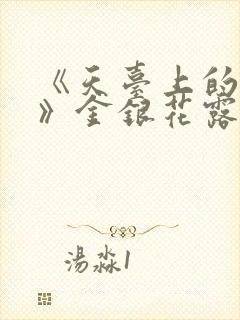 《天臺上的
》金銀花露
湯淼1